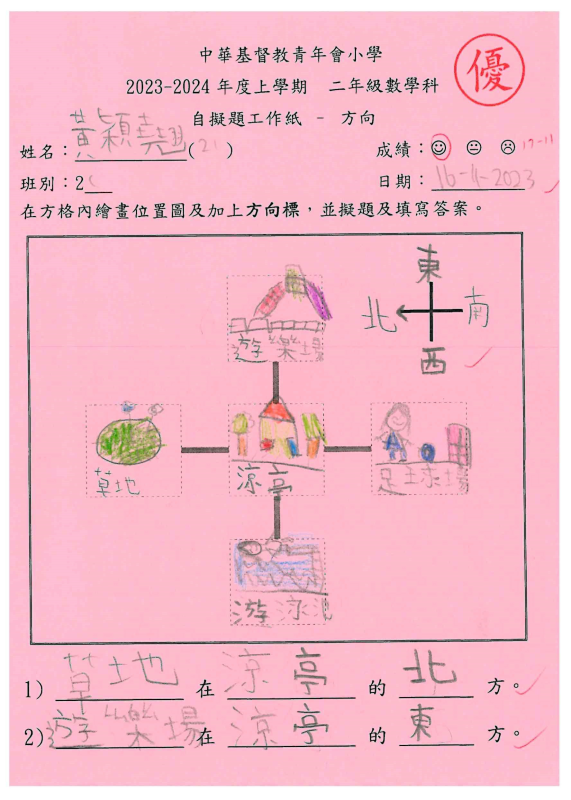 中華基督教青年會小學
優
2023-2024 年度上學期 二年級數學科
自擬題工作紙 - 方向
姓名：黃穎堯翹(21) 成績：☺ 😐 ☹ 17-11
班別：2C 日期：16-11-2023
在方格內繪畫位置圖及加上方向標，並擬題及填寫答案。
東
北 南
西
遊樂場
草地 涼亭 足球場
游泳
1) 草地 在 涼亭 的 北 方。
2) 遊樂場 在 涼亭 的 東 方。